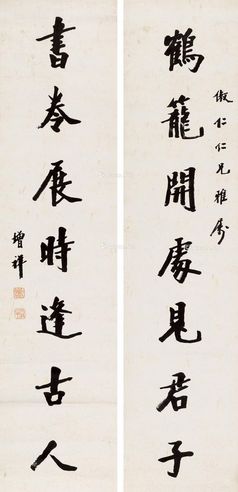 鶴籠開處見君子
俶仁仁兄雅屬
書卷展時逢古人
增祥